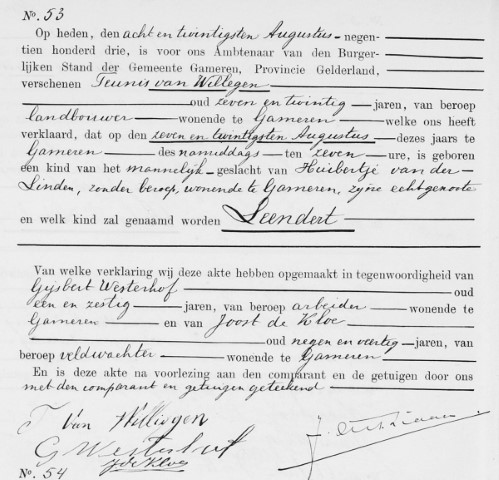 No. 53
Op heden, den acht en twintigsten Augustus negen-
tien honderd drie, is voor ons Ambtenaar van den Burger-
lijken Stand der Gemeente Gameren, Provincie Gelderland,
verschenen Teunis van Willegen
oud zeven en twintig jaren, van beroep
landbouwer wonende te Gameren welke ons heeft
verklaard, dat op den zeven en twintigsten Augustus dezes jaars te
Gameren des namiddags ten zeven ure, is geboren
een kind van het mannelijk geslacht van Huibertje van der
Linden, zonder beroep, wonende te Gameren, zijne echtgenoote
en welk kind zal genaamd worden Leendert
Van welke verklaring wij deze akte hebben opgemaakt in tegenwoordigheid van
Gijsbert Westerhof oud
een en zestig jaren, van beroep arbeider wonende te
Gameren en van Joost de Kloe
oud negen en veertig jaren, van
beroep veldwachter wonende te Gameren
En is deze akte na voorlezing aan den comparant en de getuigen door ons
met den comparant en getuigen geteekend
T van Willigen
G Westerhof
J de Kloe
No. 54